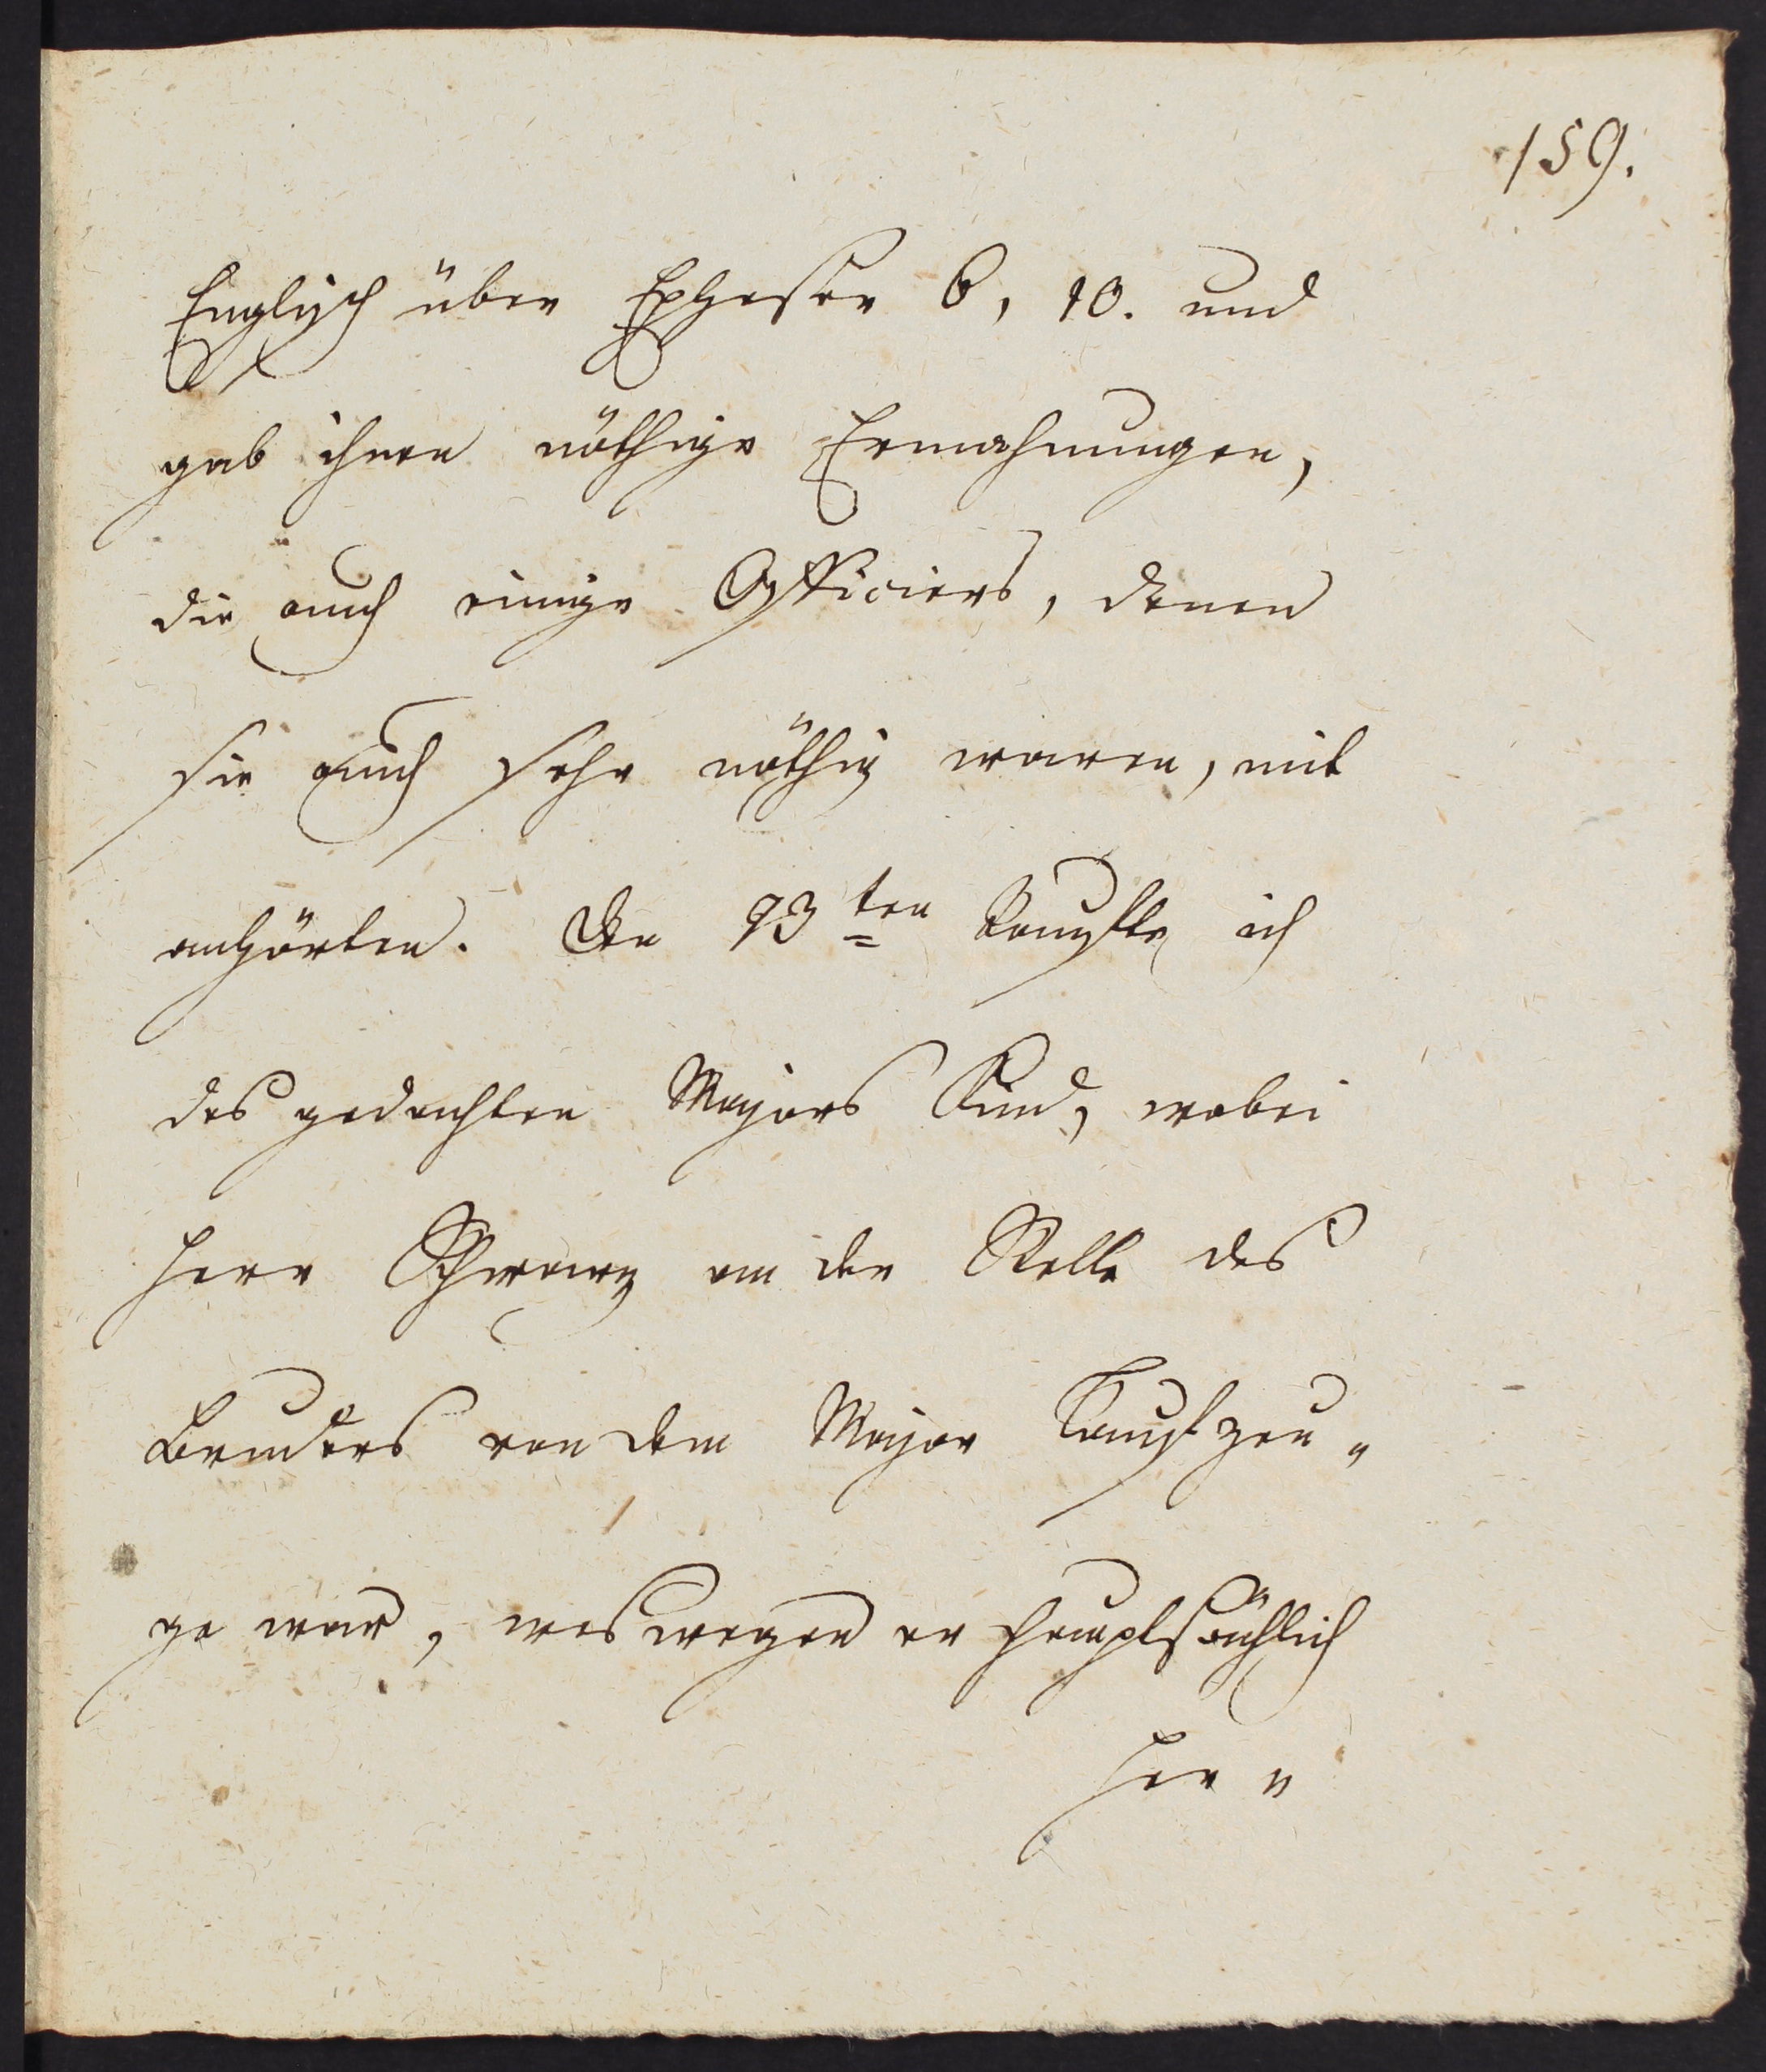 159.
Englisch über Epheser 6, 10. und
gab ihnen nöthige Ermahnungen,
die auch einige Officiers, denen
sie auch sehr nöthig waren, mit
anhörten. Den 13ten taufte ich
des gedachten Majors Kind, wobei
Herr Schwarz an der Stelle des
Bruders von dem Major Taufzeu„
ge war, weswegen er hauptsächlich
her„